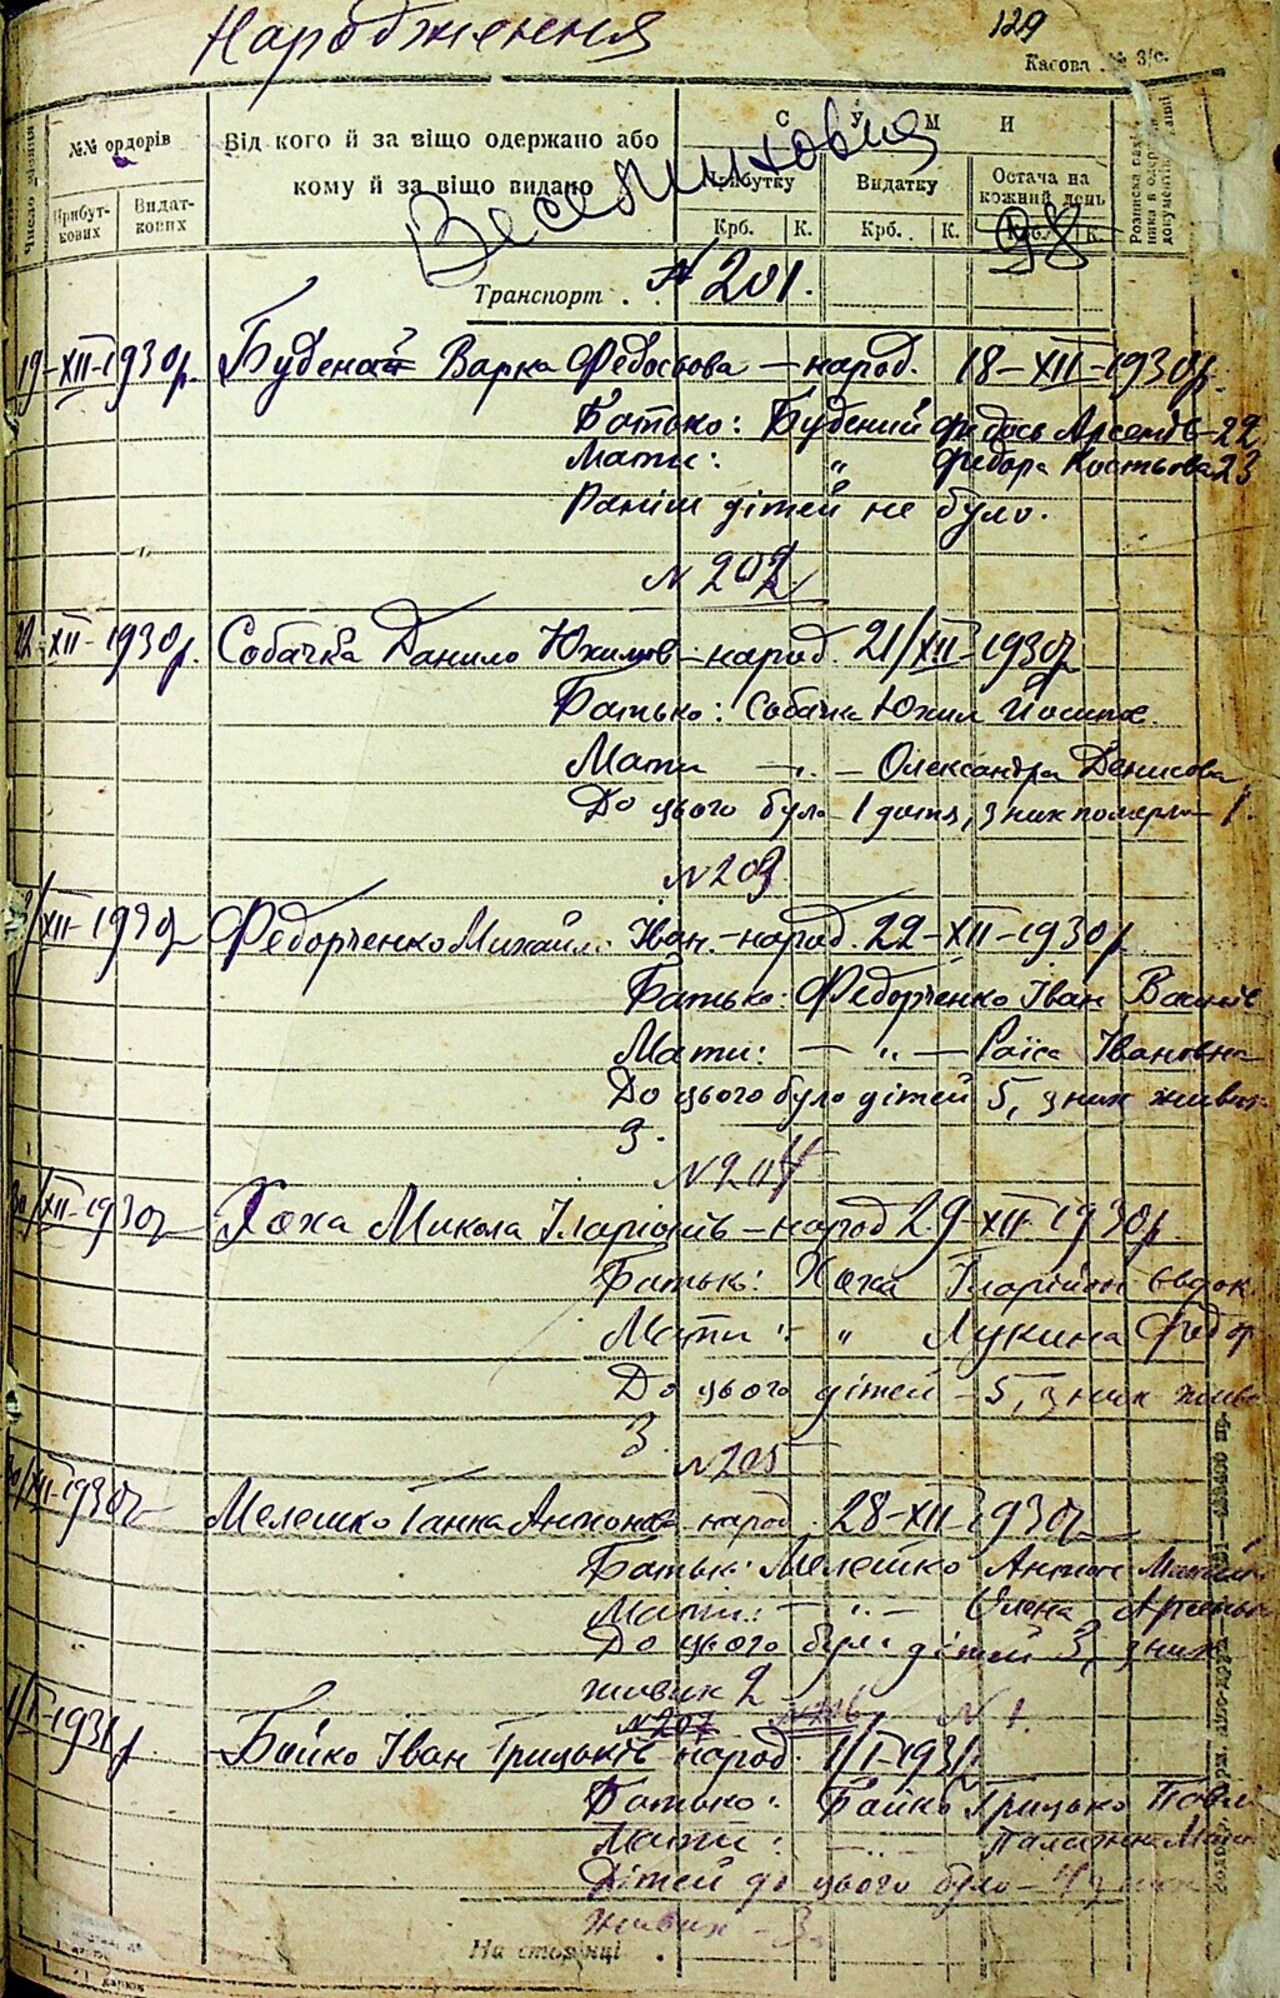 Народження
129
Касова № 3/с.
Число місяця
№№ ордорів
Від кого й за віщо одержано або
кому й за віщо видано
С У М И
Прибут-
кових
Видат-
кових
Прибутку
Видатку
Остача на
кожний день
Крб. К. Крб. К. Крб. К.
Веселиновця
98
Транспорт . . N 201.
19-XII-1930р. Буденай Варка Федосьова — народ. 18-XII-1930р.
Батько: Будений Федось Арсентів-22
Мати: " Федора Костьова 23
Раніш дітей не було.
N 202
22-XII-1930р. Собачка Данило Юхимов - народ. 21/XII-1930р
Батько: Собачка Юхим Йосипов.
Мати —"— Олександра Денисова
До цього було 1 дитя, з них померло - 1.
N 203
/XII-1930р Федорченко Михайло Іван. - народ. 22-XII-1930р.
Батько: Федорченко Іван Василів
Мати: —"— Раїса Івановна
До цього було дітей 5, з них живих
3.
N 204
30/XII-1930р Хоха Микола Іларіонів — народ 29-XII-1930р.
Батько: Хоха Іларіон Євдок.
Мати: " Лукина Федор
До цього дітей - 5, з них живи
3.
N 205
30/XII-1930р Мелешко Ганна Антонова народ. 28-XII-1930р
Батько: Мелешко Антон
Мати: —"— Олена
До цього було дітей 3, з них
живих 2
N 207 N 206 N 1.
1/I-1931р. Бойко Іван Грицьків народ. 1/I-1931р.
Батько: Бойко Грицько Павл
Мати: —"—
Дітей до цього було - 4 з них
живих - 3.
На сторінці .